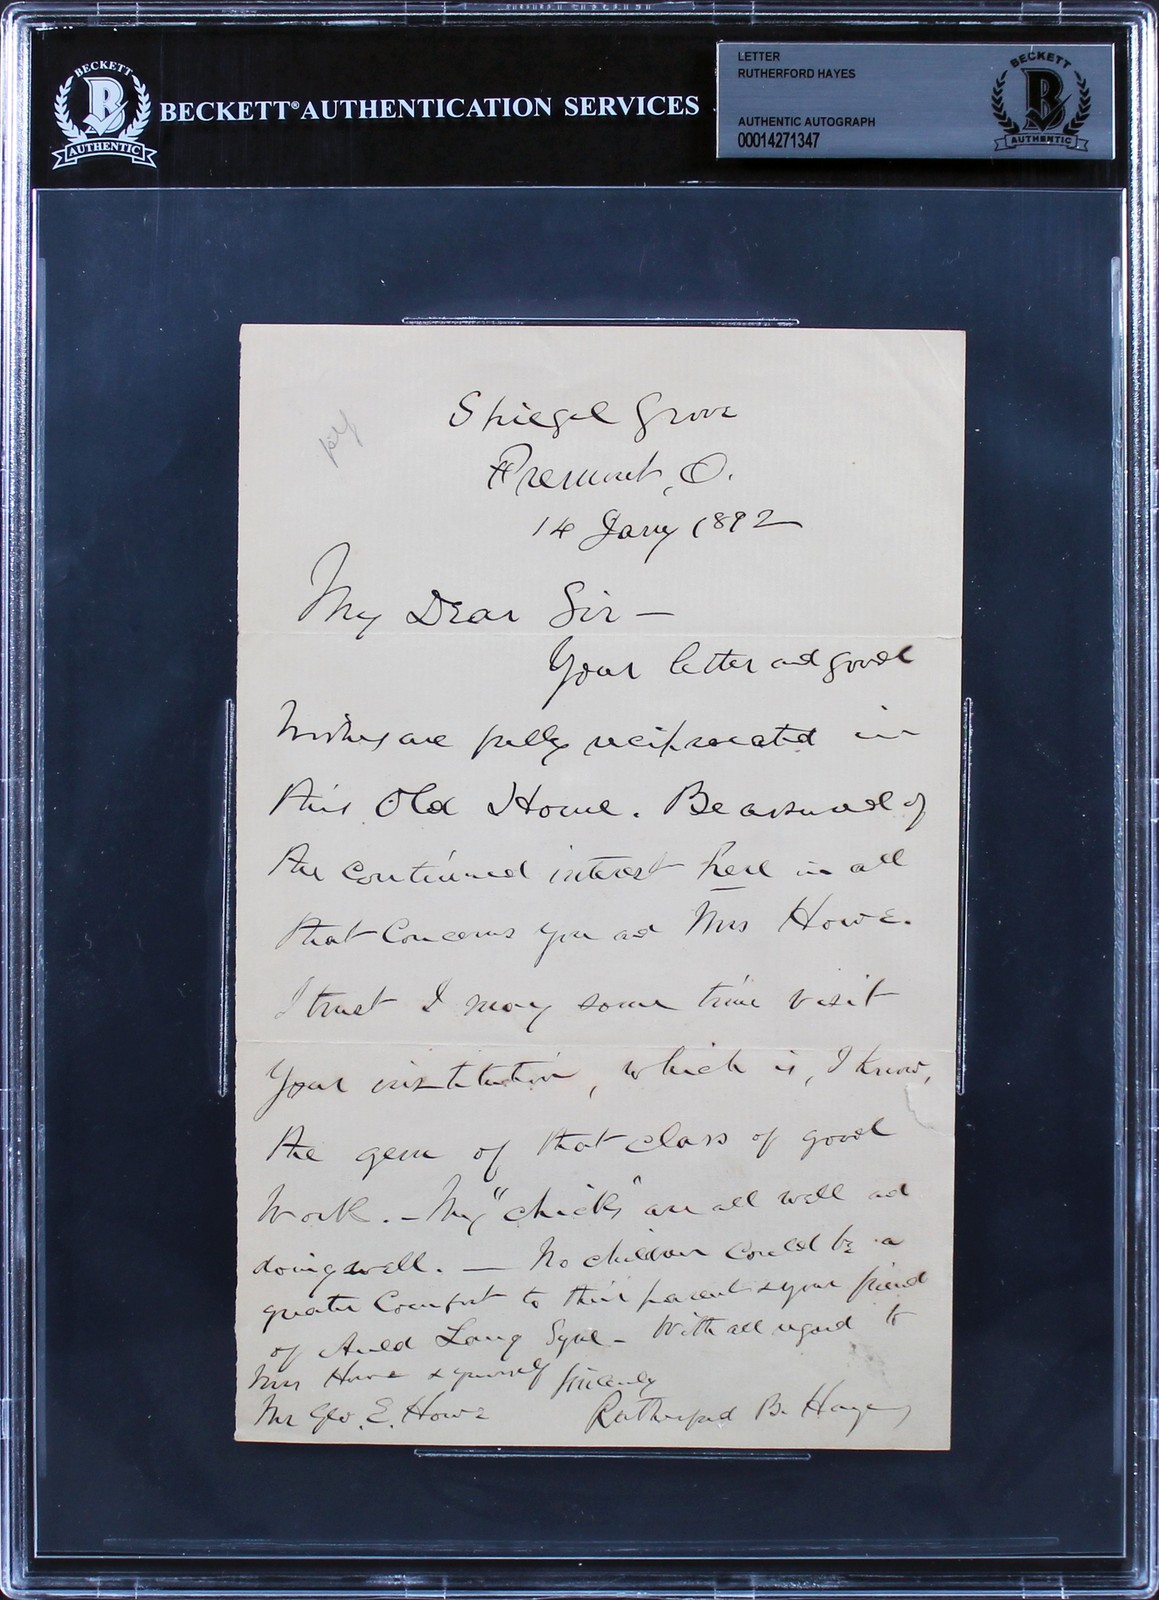 BECKETT
B
AUTHENTIC
BECKETT® AUTHENTICATION SERVICES
LETTER
RUTHERFORD HAYES
AUTHENTIC AUTOGRAPH
00014271347
BECKETT
B
AUTHENTIC
Spiegel Grove
Fremont, O.
14 Jany 1892
My Dear Sir —
Your letter and good
wishes are fully reciprocated in
this Old Home. Be assured of
the continued interest here in all
that concerns you and Mrs Howe.
I trust I may some time visit
your institution, which is, I know,
the gem of that class of good
work. — My "chicks" are all well and
doing well. — No children could be a
greater comfort to their parent & your friend
of Auld Lang Syne — With all regard to
Mrs Howe & yourself Sincerely
Mr Geo. E. Howe Rutherford B. Hayes